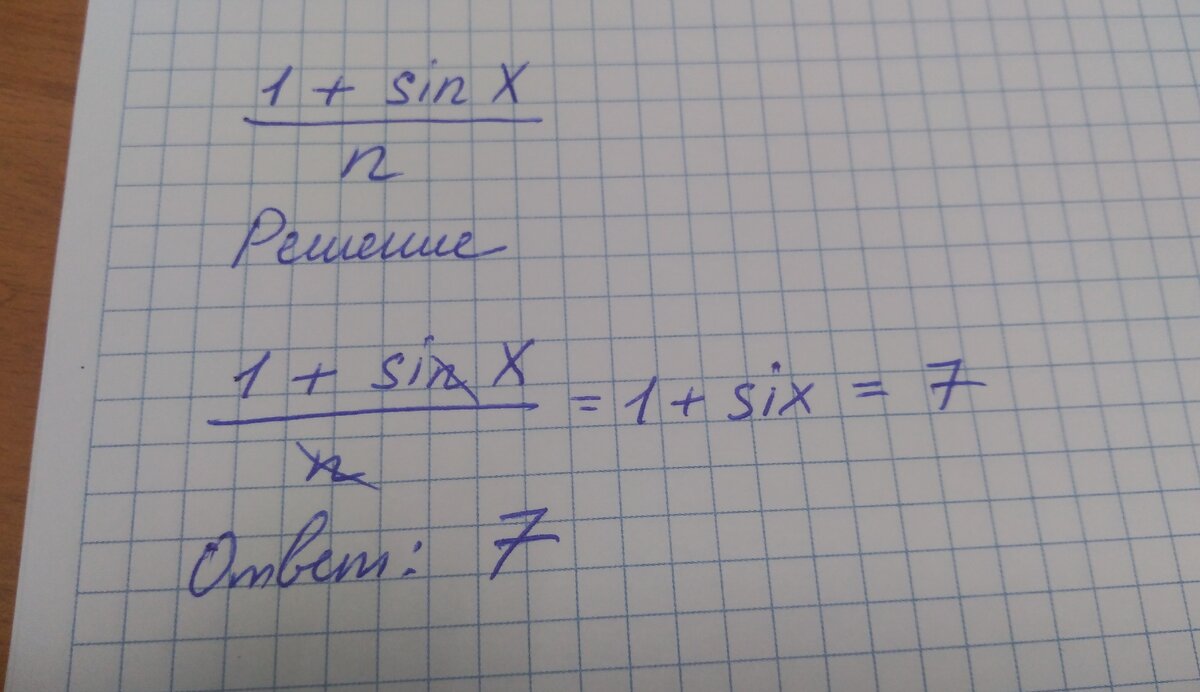 1 + sin X
n
Решение
1 + sin X = 1 + six = 7
n
Ответ: 7